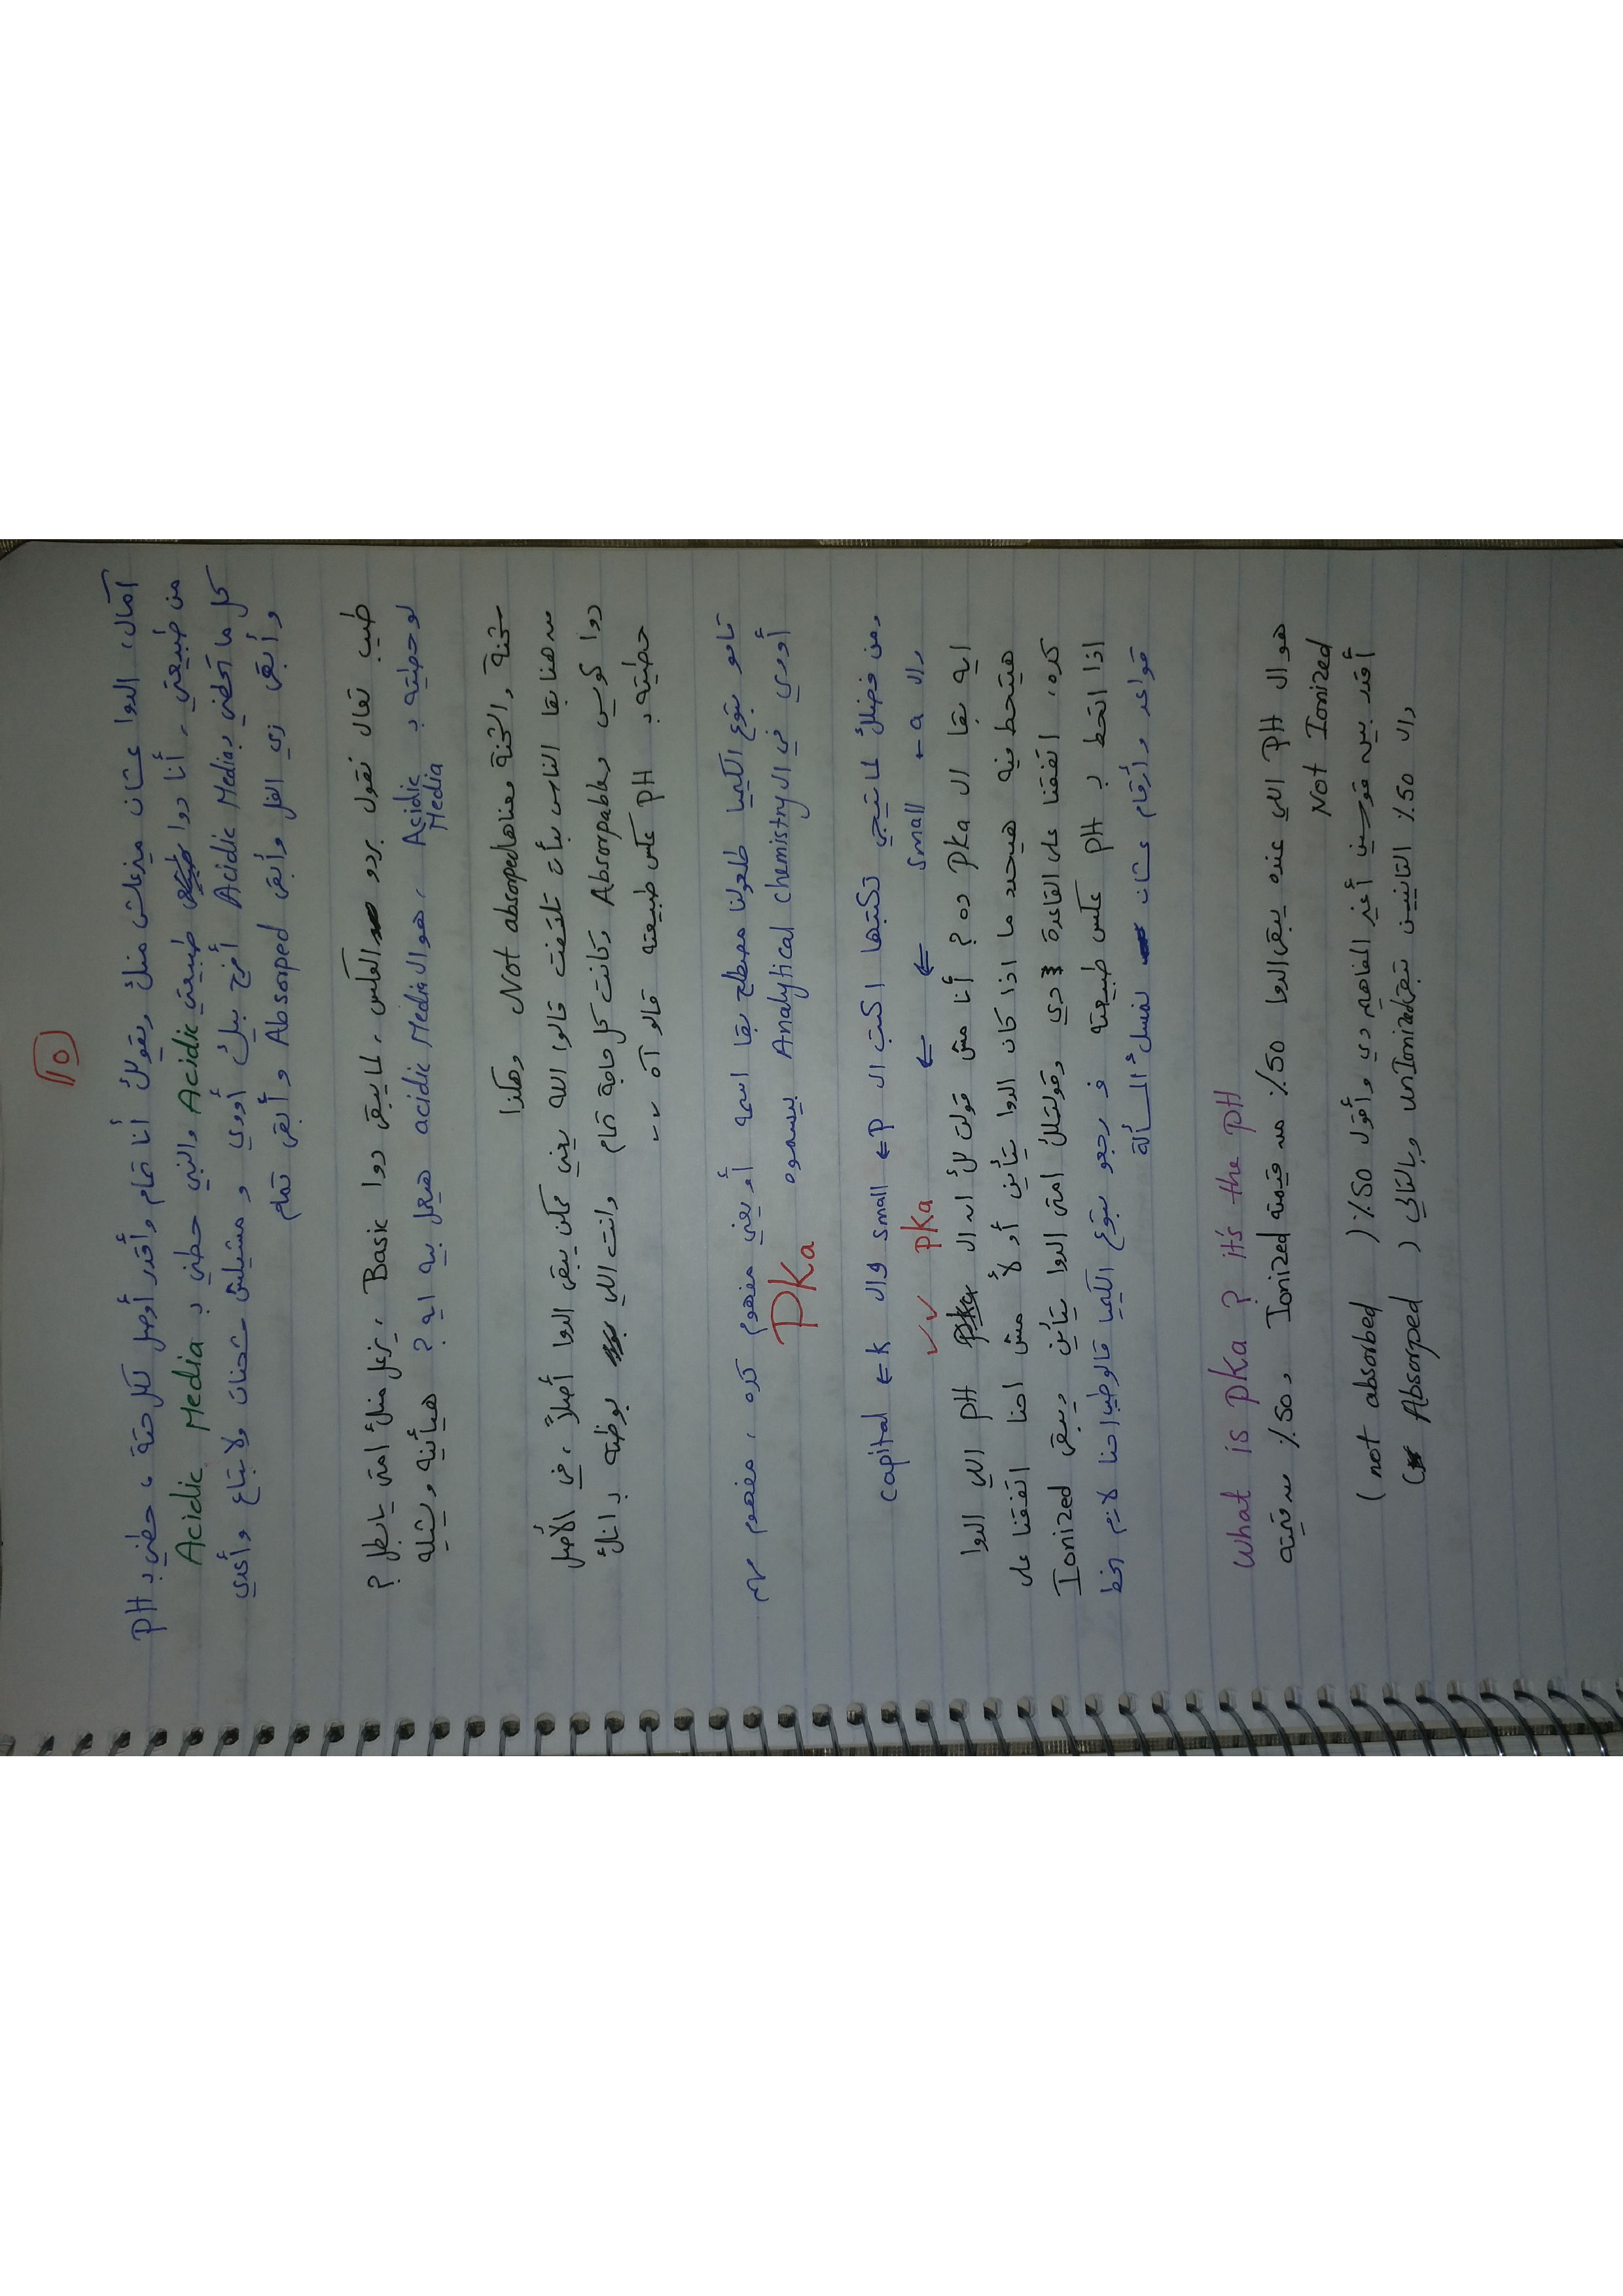 ١٥
آمال، الدوا عشان ميزعلش منك ويقولك أنا تمام وأقدر أوصل لكل حتة، حطني بـ PH
من طبيعتي، أنا دوا طبيعتي Acidic والنبي حطني بـ Acidic Media
كل ما تحطني بـ Acidic Media أفرح بيك أووي ومشيلش شحنات ولا بتاع وأعدي
وأبقى زي الفل وأبقى Absorped وأبقى تمام
طيب تعال نقول بردو العكس، لما يبقى دوا Basic، يزعل منك امتى يا بطل؟
لو حطيته بـ Acidic Media، هو الـ acidic Media هيعمل بيه ايه؟ هيأينه ويشيله
شحنة، والشحنة معناها Not absorped وهكذا
من هنا بقا الناس بدأت تلتفت قالوا الله يعني ممكن يبقى الدوا أصلاً، في الأصل
دوا كويس و Absorpable وكانت كل حاجة تمام وانت اللي بوظته بـ انك
حطيته بـ PH عكس طبيعته قالو آه ..
قامو بتوع الكيميا طلعولنا مصطلح بقا اسمه أو يعني مفهوم كده، مفهوم مهم
أووي في الـ Analytical chemistry بيسموه PKa
ومن فضلك لما تيجي تكتبها اكتب الـ P ⇐ small والـ K ⇐ capital
والـ a ← small ⇐ ⇐ pKa ✓✓
ايه بقا الـ Pka ده؟ أنا مش قولت لك ان الـ PH اللي الدوا
هيتحط فيه هيحدد ما اذا كان الدوا يتأين أو لأ مش احنا اتفقنا على
كده، اتفقنا على القاعدة دي وقولتلك امتى الدوا يتأين ويبقى Ionized
اذا اتحط بـ PH عكس طبيعته فـ رجعو بتوع الكيميا قالو طب احنا لازم نحط
قواعد وأرقام عشان نمسك المسألة
What is pKa ? it's the pH
هو الـ PH اللي عنده يبقى الدوا 50٪ من قيمته Ionized و 50٪ من قيمته
Not Ionized
أقدر بين قوسين أغير المفاهيم دي وأقول 50٪ (not absorbed)
والـ 50٪ التانيين تبقى unIonized وبالتالي (Absorped)